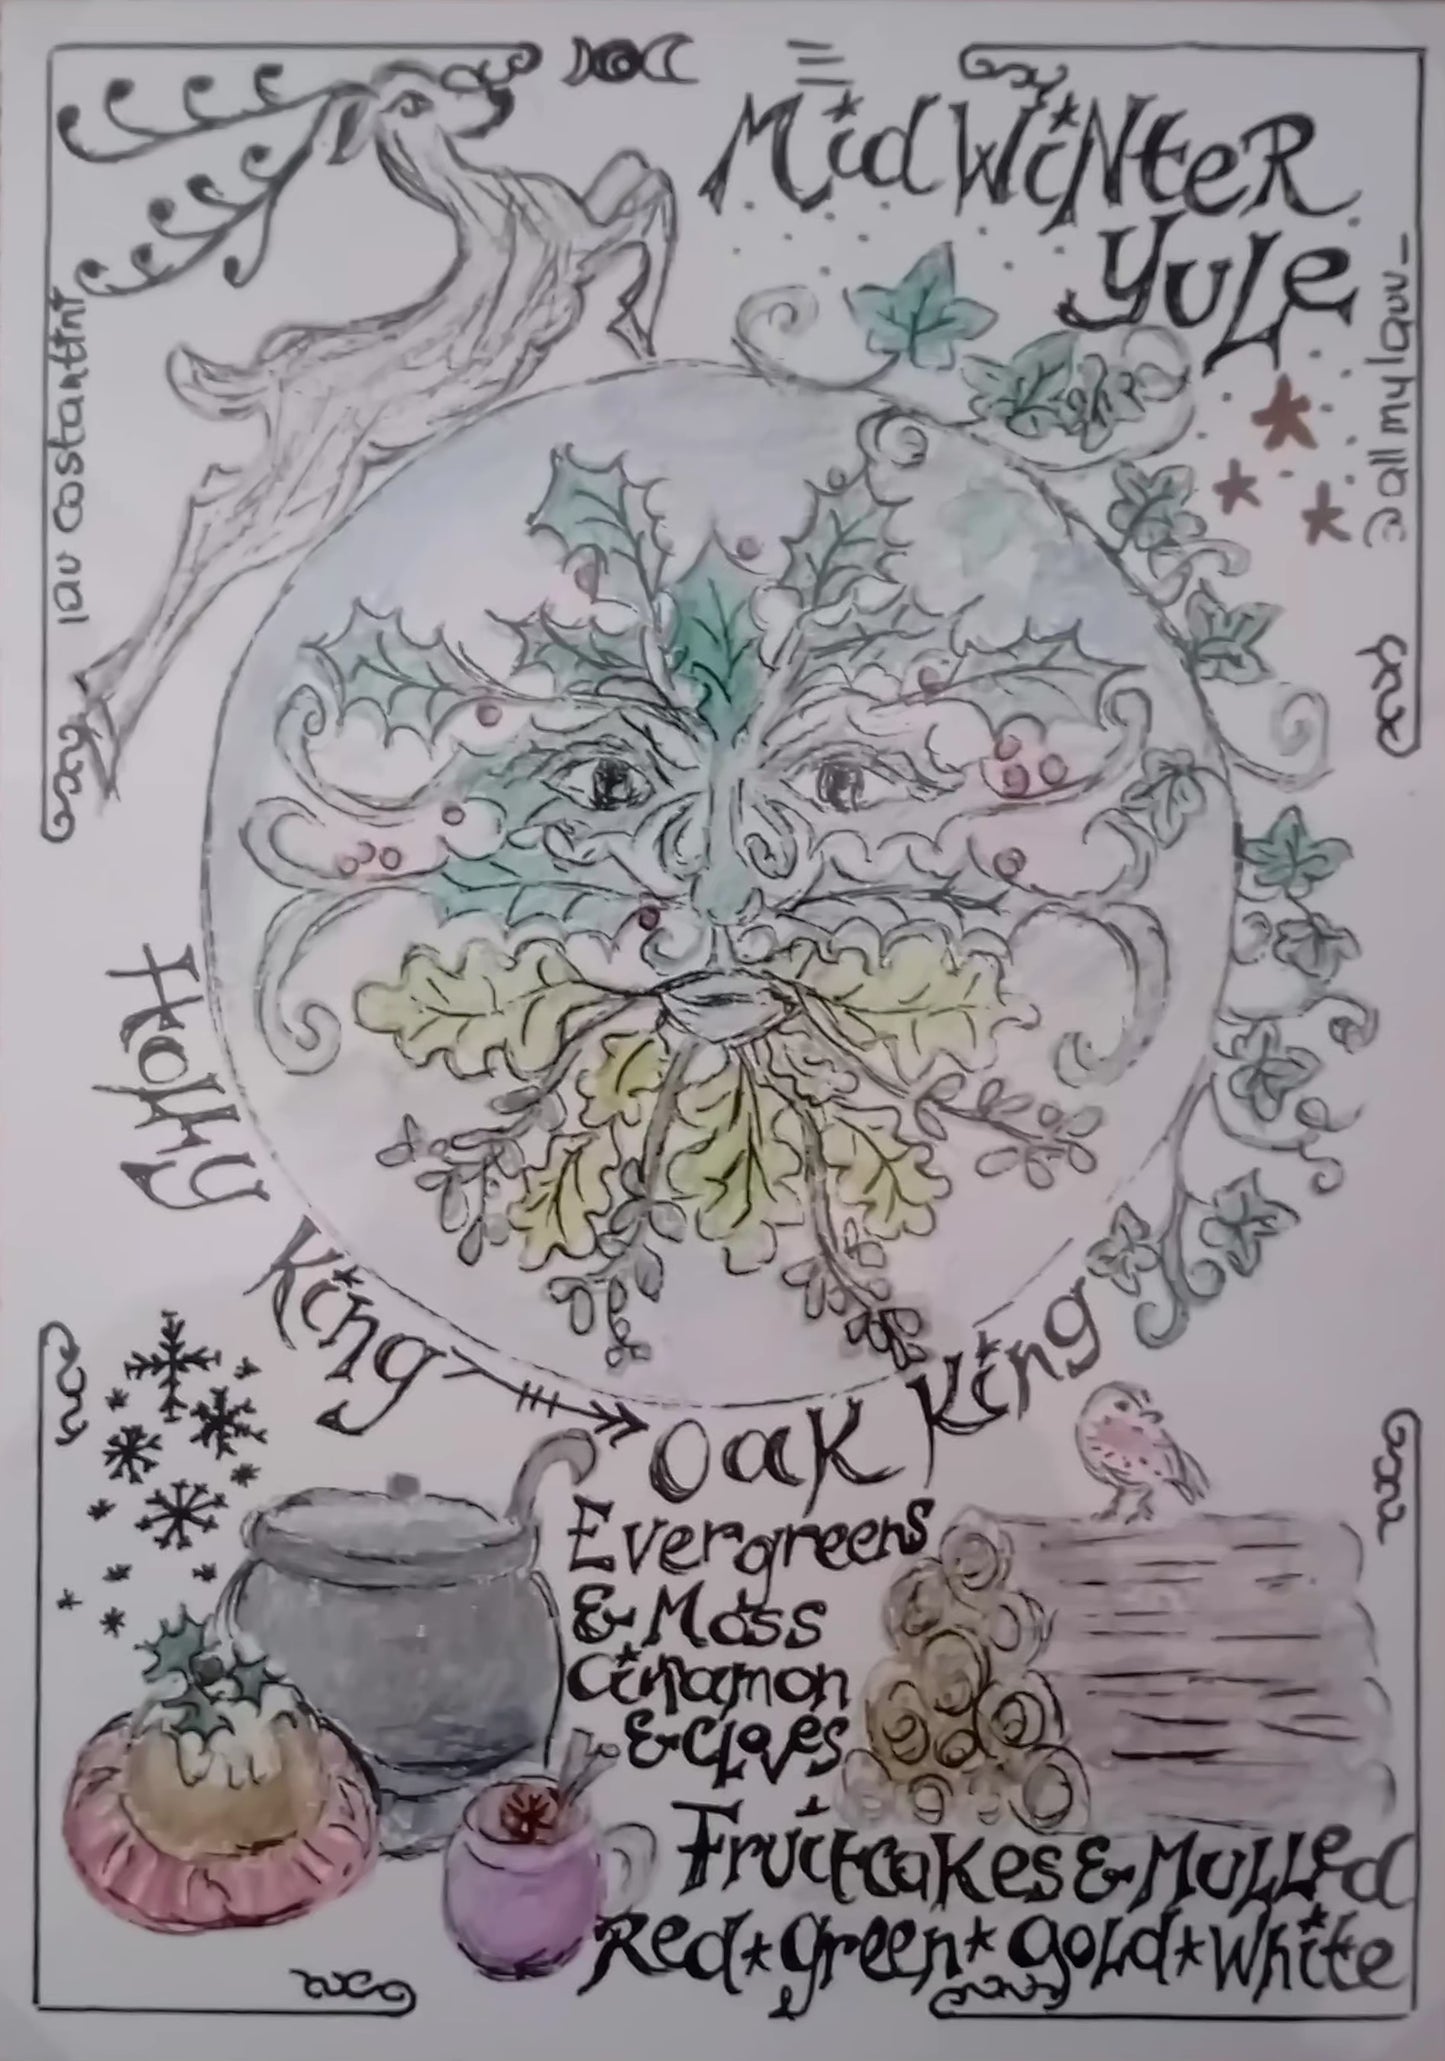 Midwinter
Yule
lau costantini
@allmylauv_
Holly King
Oak King
Evergreens
& Moss
Cinamon
& Cloves
Fruitcakes & Mulled
Red * green * gold * white